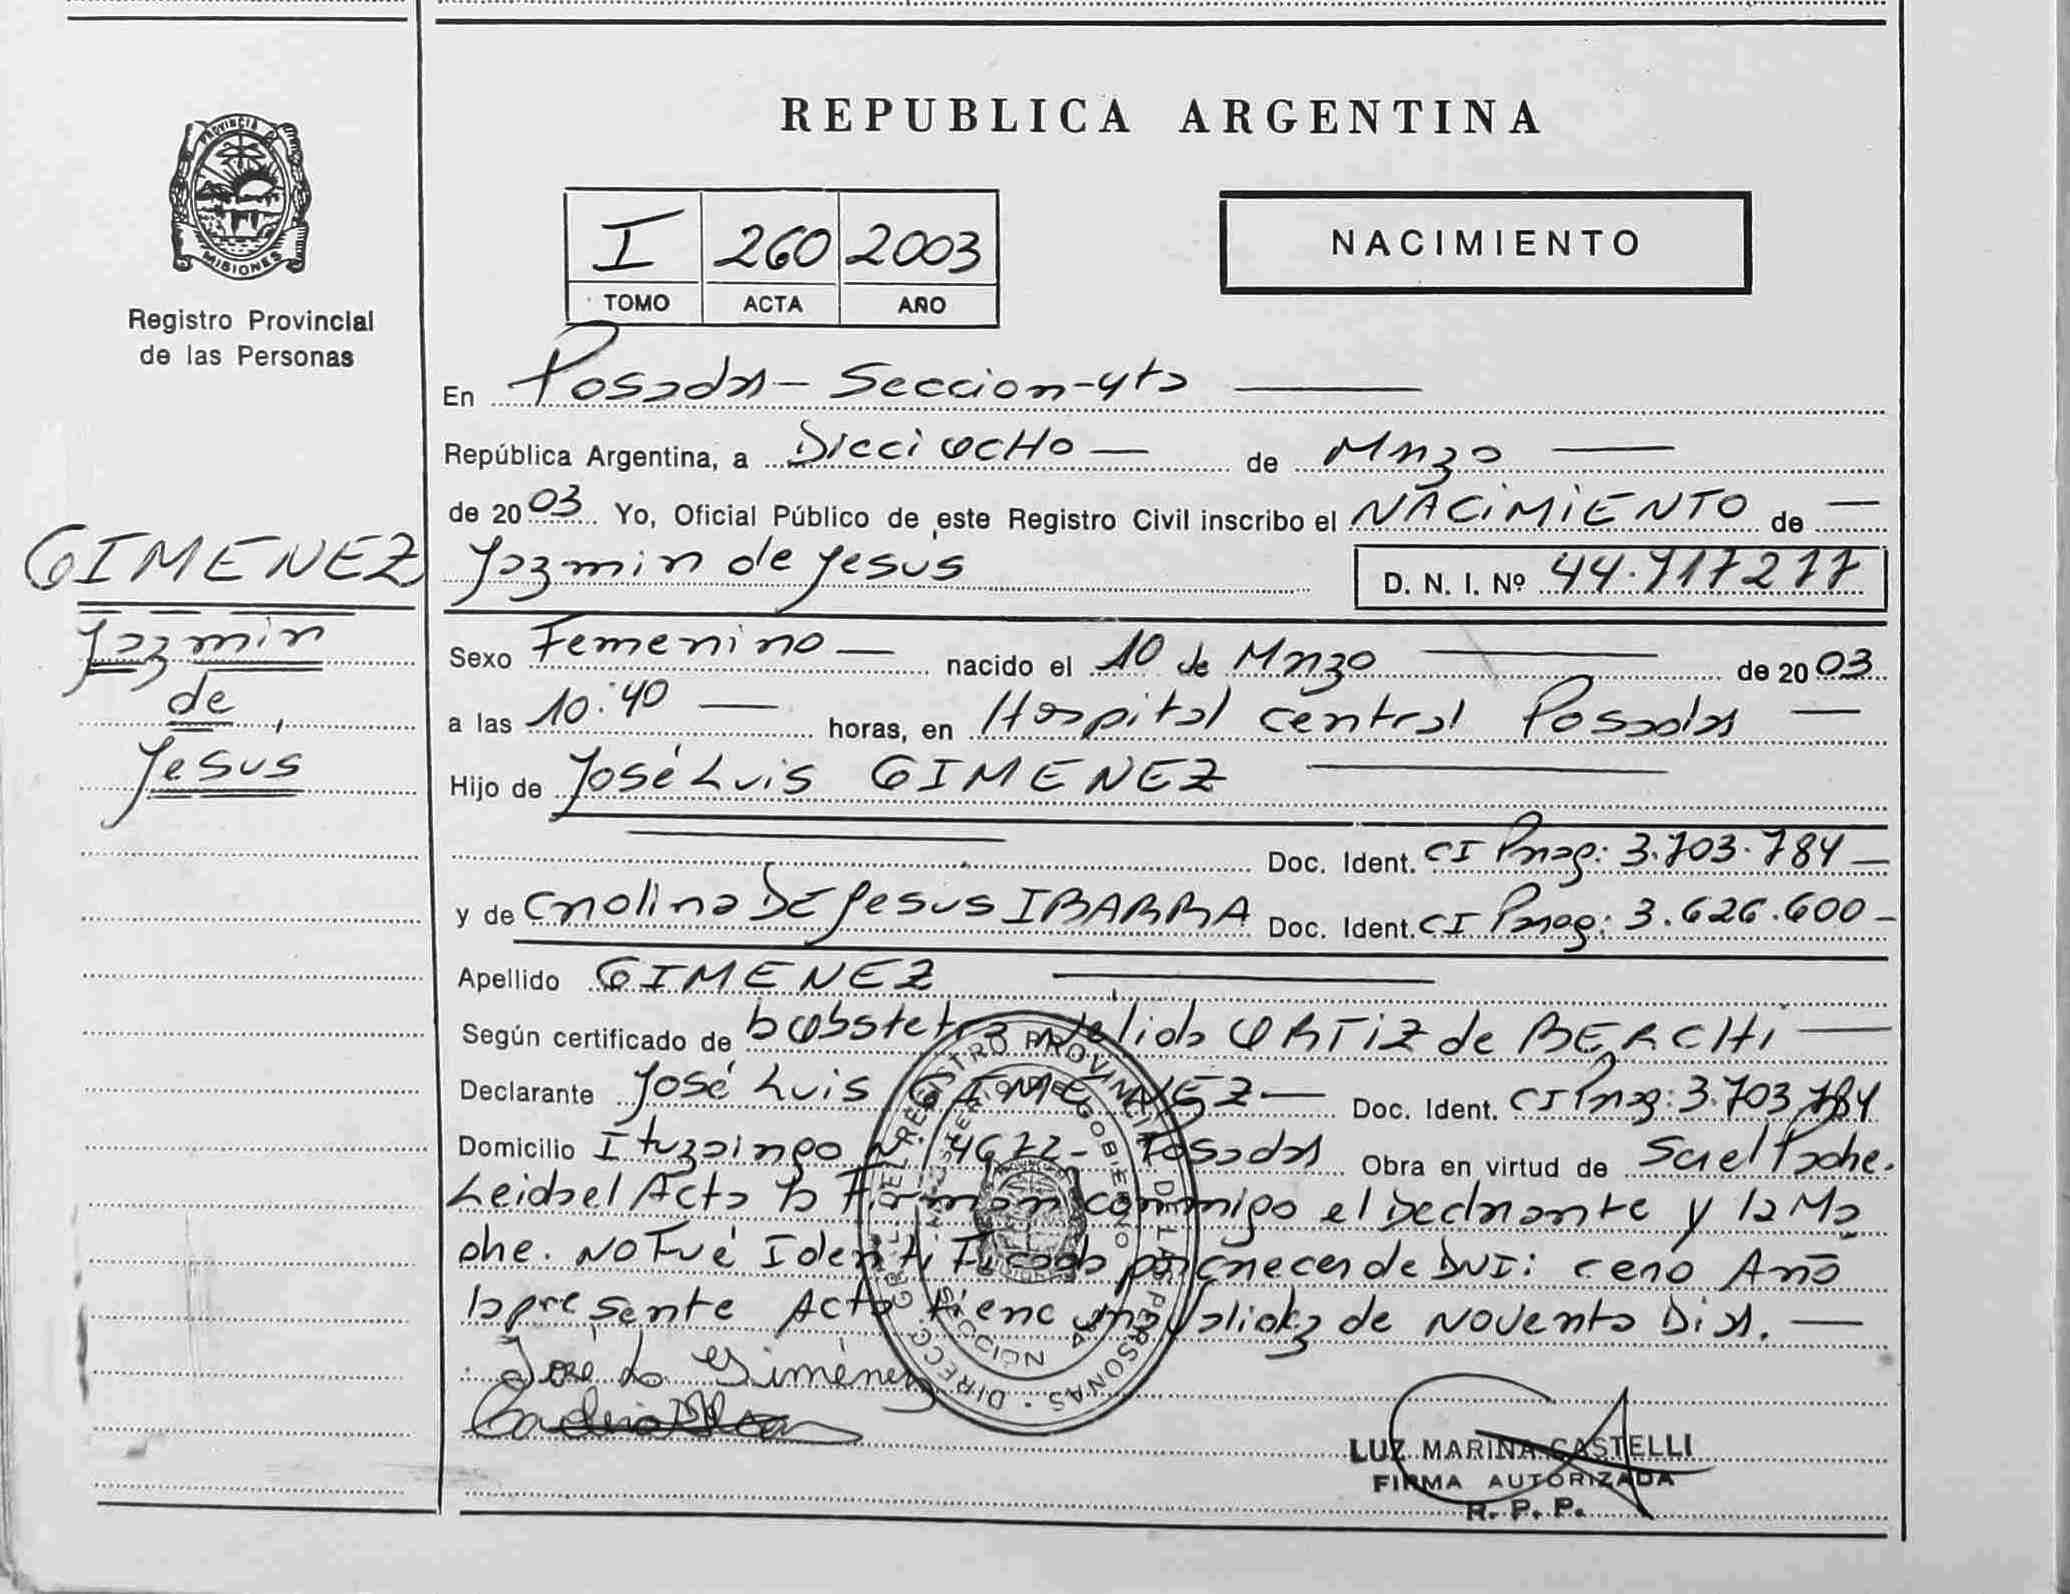 REPUBLICA ARGENTINA
PROVINCIA DE
MISIONES
Registro Provincial
de las Personas
I 260 2003
TOMO ACTA AÑO
NACIMIENTO
En Posadas - Seccion - 4ta
República Argentina, a Dieciocho de Marzo
de 2003 Yo, Oficial Público de este Registro Civil inscribo el NACIMIENTO de
Jazmin de Jesus D. N. I. Nº 44.717277
GIMENEZ
Jazmin
de
Jesus
Sexo Femenino nacido el 10 de Marzo de 2003
a las 10:40 horas, en Hospital central Posadas
Hijo de José Luis GIMENEZ
Doc. Ident. CI Parag: 3.703.784
y de Carolina DE Jesus IBARRA Doc. Ident. CI Parag: 3.626.600
Apellido GIMENEZ
Según certificado de la obstetra Nelida ORTIZ de BERCHI
Declarante José Luis GIMENEZ Doc. Ident. CI Parag: 3.703.784
Domicilio Ituzaingo N. 4672 - Posadas Obra en virtud de Ser el Padre.
Leida el Acta la Firman conmigo el Declarante y la Ma
dre. NO Fué Identificado por carecer de DNI: cero Año
la presente Acta tiene una validez de Noventa Dias.
José L. Giménez
LUZ MARINA CASTELLI
FIRMA AUTORIZADA
R. P. P.
DIRECC. GRAL. DEL REGISTRO PROVINCIAL DE LAS PERSONAS
MINISTERIO DE GOBIERNO